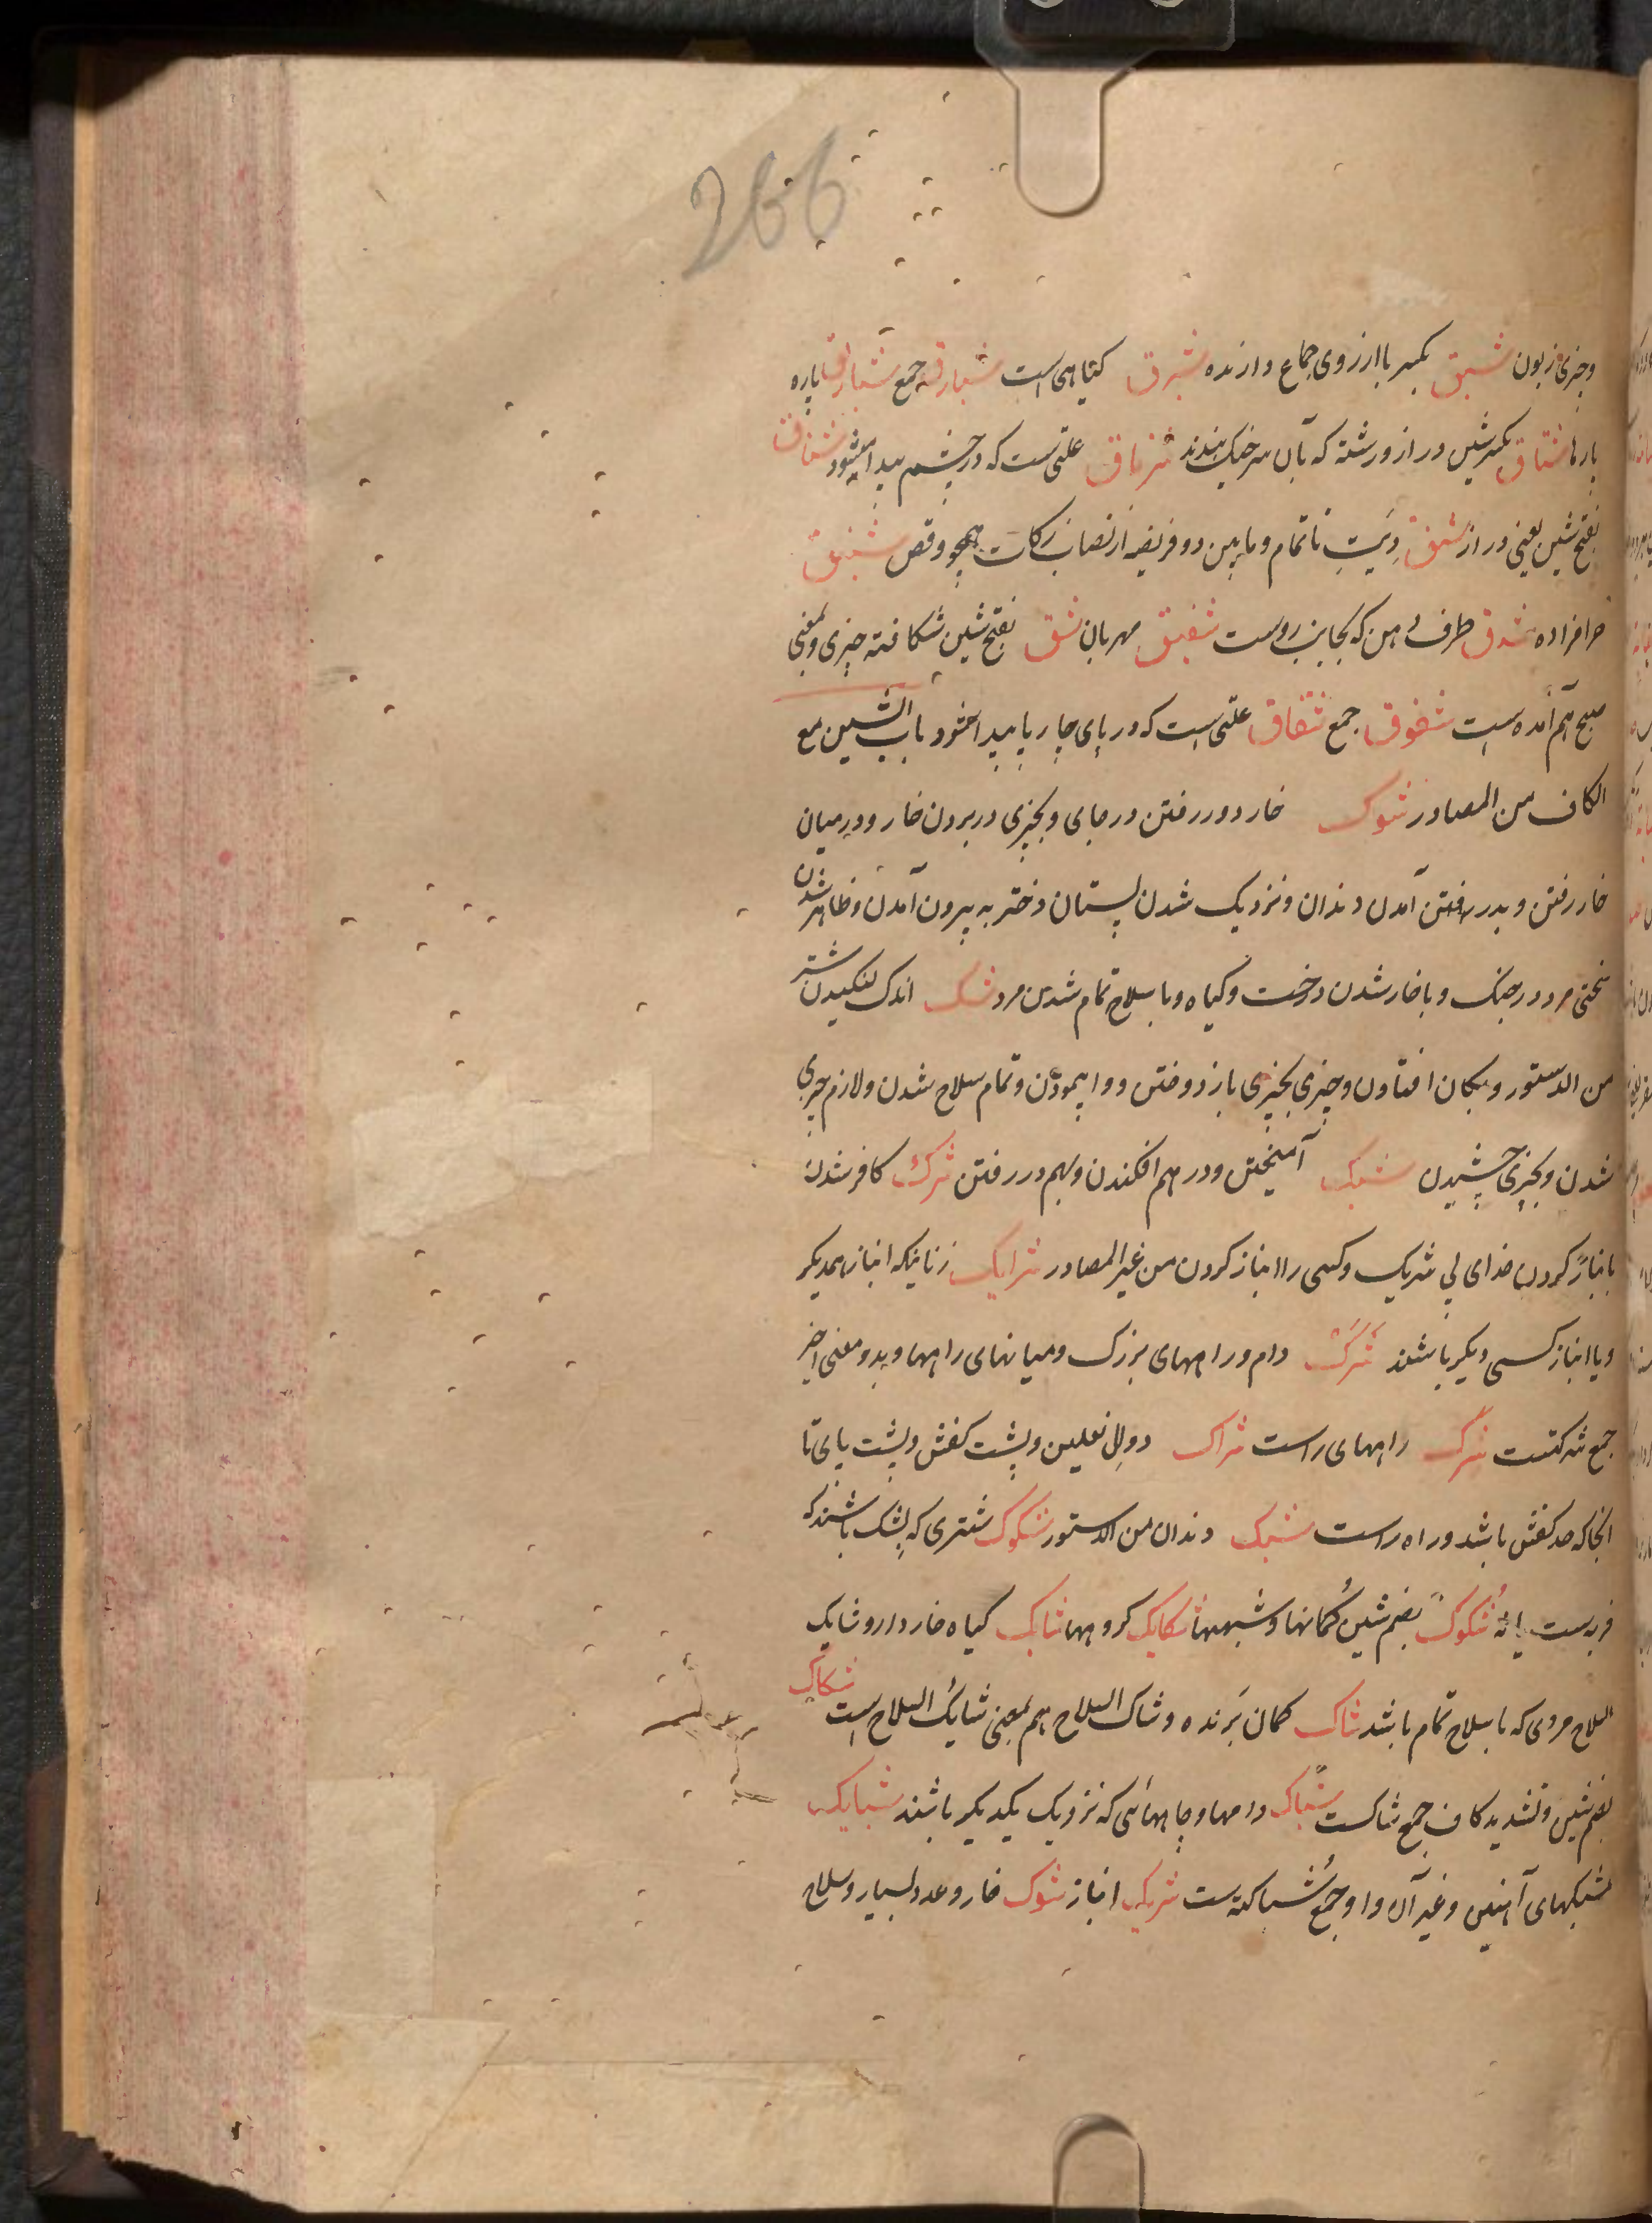 266
وچیزی زبون شبق بکسر با ارزوی جماع دارنده شبرق گیاهی است شبارقه جمع شبارق پاره
پارها شناق بکسر شین دراز و رشته که بآن سر خیک بندند شرناق علتی ست که در چشم پیدا میشود شناق
بفتح شین یعنی دراز شنق دیت ناتمام و مابین دو فریضه از نصاب زکات همچو وقص شنیق
حرامزاده شدق طرف دهن که بجانب روست شفیق مهربان شق بفتح شین شکافته چیزی و بمعنی
صبح هم آمده است شقوق جمع شقاق علتی است که در پای چارپا پیدا شود باب الشین مع
الکاف من المصادر شوک خار در رفتن در جای و بچیزی در بردن خار و درمیان
خار رفتن و بدر رفتن آمدن دندان و نزدیک شدن پستان دختر به بیرون آمدن و ظاهر شدن
سختی مرد در جنگ و باخار شدن درخت و گیاه و با سلاح تمام شدن مرد شک اندک لنگیدن شتر
من الدستور و بگمان افتادن و چیزی بچیزی باز دوختن و وا پیمودن و تمام سلاح شدن و لازم چیزی
شدن و بچیزی چسپیدن شبک آمیختن و در هم افکندن و بهم در رفتن شرک کافر شدن
بانباز کردن خدای بی شریک و کسی را انباز کردن من غیر المصادر شرایک زنانیکه انباز همدیگر
و یا انباز کسی دیگر باشند شرک دام و راههای بزرگ و میانهای راهها و بدو معنی اخیر
جمع شرکتست شرک راههای راست شراک دوال نعلین و پشت کفش و پشت پای تا
انجا که حد کفش باشد و راه راست شبک دندان من الدستور شکوک شتری که بشک باشند که
فربه ست یا نه شکوک بضم شین گمانها و شبهها شکایک گروهها شایک گیاه خاردار و شایک
السلاح مردی که با سلاح تمام باشد شاک گمان برنده و شاک السلاح هم بمعنی شایک السلاح است شکاک
بضم شین و تشدید کاف جمع شاکست شباک دامها و چاههائی که نزدیک یکدیگر باشند شبایک
شبکهای آهنین و غیر آن و او جمع شباکه ست شریک انباز شوک خار و عدد بسیار و سلاح